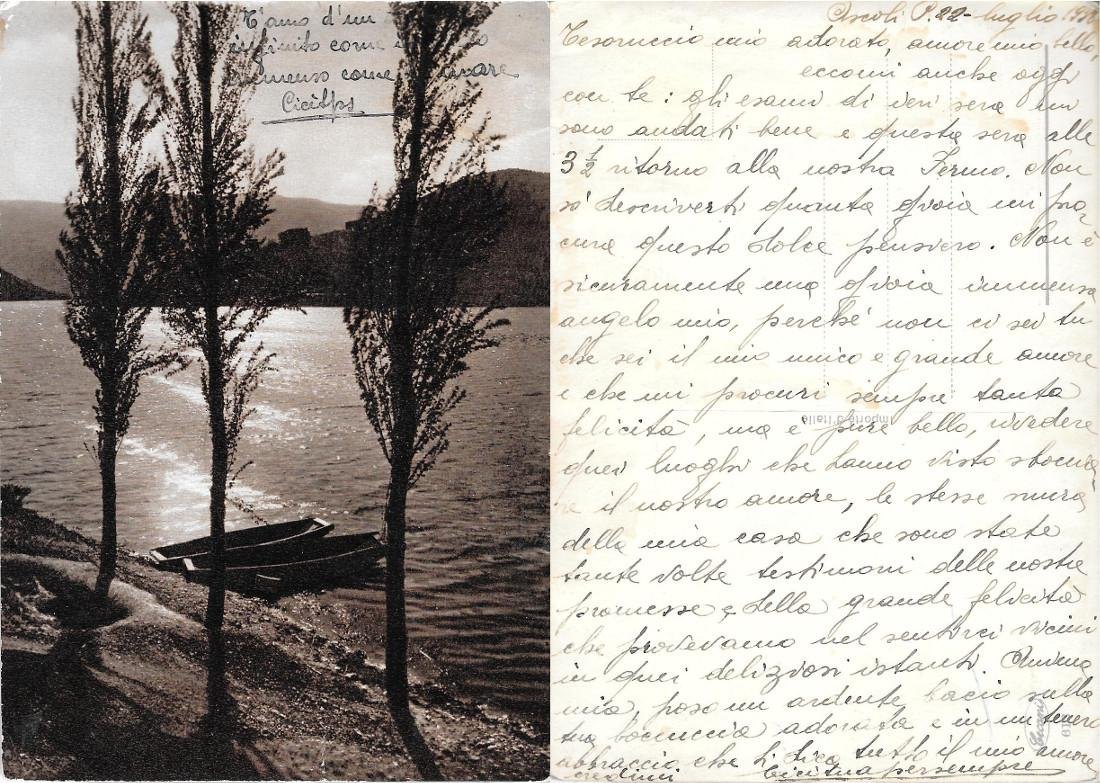 T'amo d'un
infinito come
immenso come mare
Ascoli P. 22-luglio
Tesoruccio mio adorato, amore mio bello,
eccomi anche oggi
con te: gli esami di ieri sera mi
sono andati bene e questa sera alle
3 ½ ritorno alla nostra Fermo. Non
so descriverti quanta gioia mi pro-
cura questo dolce pensiero. Non è
sicuramente una gioia immensa
angelo mio, perché non ci sei tu
che sei il mio unico e grande amore
e che mi procuri sempre tanta
felicità, ma è pure bello, rivedere
quei luoghi che hanno visto sboccia-
re il nostro amore, le stesse mura
della mia casa che sono state
tante volte testimoni delle nostre
promesse e della grande felicità
che provavamo nel sentirci vicini
in quei deliziosi istanti. Anima
mia, poso un ardente bacio sulla
tua boccuccia adorata e in un tenero
abbraccio che ti dica tutto il mio amore
credimi Cici tua per sempre
Importé d'Italie